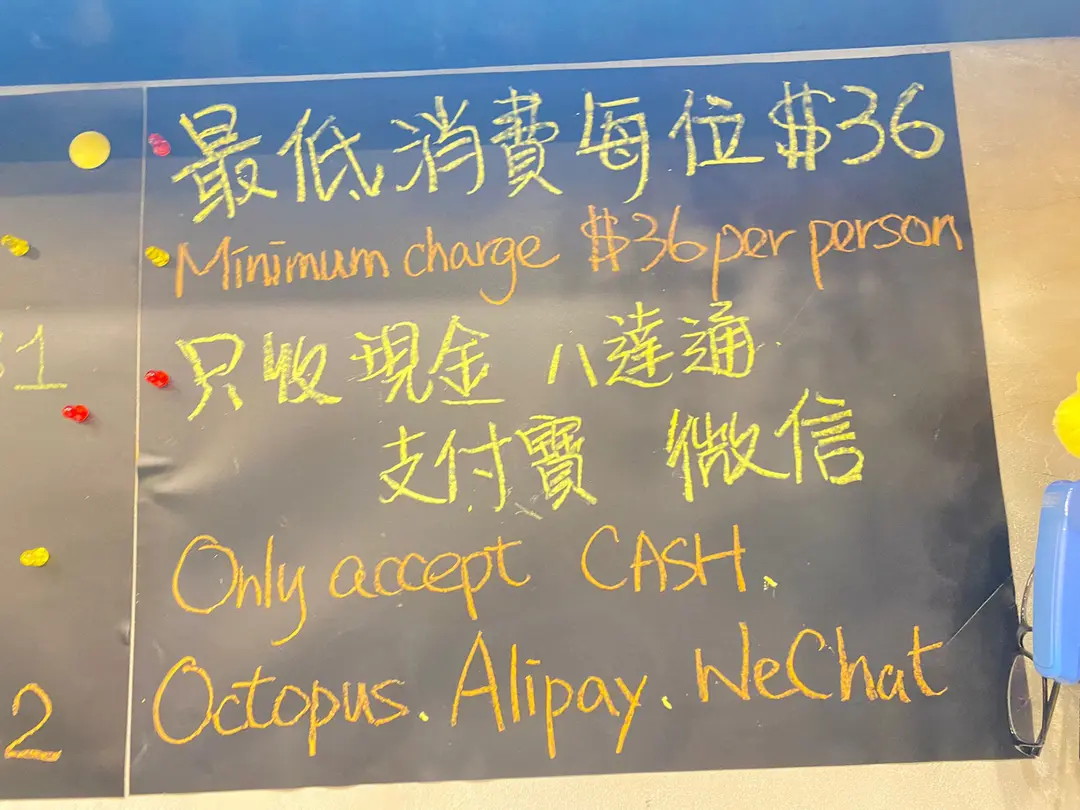 最低消費每位$36
Minimum charge $36 per person
只收現金 八達通
支付寶 微信
Only accept CASH.
Octopus. Alipay. WeChat
2